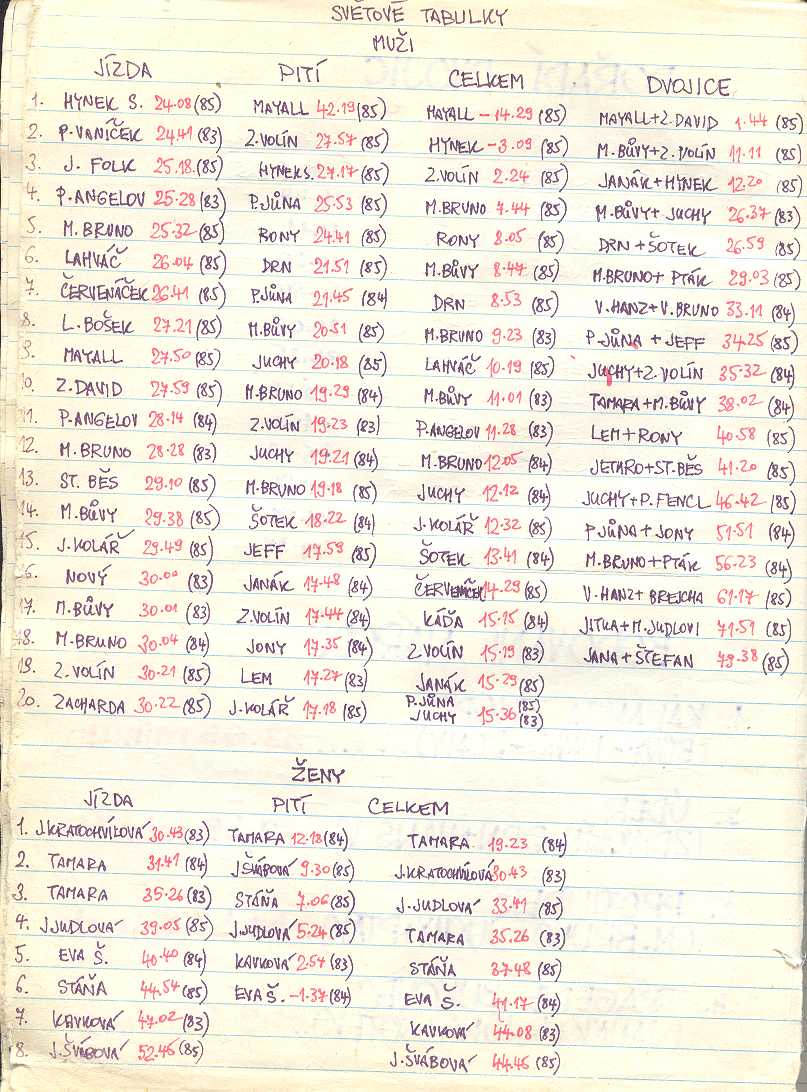 SVĚTOVÉ TABULKY
MUŽI
JÍZDA PITÍ CELKEM DVOJICE
1. HYNEK S. 24.08 (85) MAYALL 42.19 (85) MAYALL -14.29 (85) MAYALL+Z.DAVID 1.44 (85)
2. P.VANÍČEK 24.41 (83) Z.VOLÍN 27.57 (85) HYNEK -3.09 (85) M.BŮVY+Z.VOLÍN 11.11 (85)
3. J. FOLK 25.18.(85) HYNEKS. 27.17 (85) Z.VOLÍN 2.24 (85) JANÁK+HYNEK 12.20 (85)
4. P.ANGELOV 25.28 (83) P.JŮNA 25.53 (85) M.BRUNO 7.44 (85) M.BŮVY+JUCHY 26.37 (83)
5. M.BRUNO 25.32 (85) RONY 24.41 (85) RONY 8.05 (85) DRN+ŠOTEK 26.59 (85)
6. LAHVÁČ 26.04 (85) DRN 21.51 (85) M.BŮVY 8.47 (85) M.BRUNO+PTÁK 29.03 (85)
7. ČERVENÁČEK 26.41 (85) P.JŮNA 21.45 (84) DRN 8.53 (85) V.HANZ+V.BRUNO 33.11 (84)
8. L.BOŠEK 27.21 (85) M.BŮVY 20.51 (85) M.BRUNO 9.23 (83) P.JŮNA + JEFF 34.25 (85)
9. MAYALL 27.50 (85) JUCHY 20.18 (85) LAHVÁČ 10.19 (85) JUCHY+Z.VOLÍN 35.32 (84)
10. Z.DAVID 27.59 (85) M.BRUNO 19.29 (84) M.BŮVY 11.01 (83) TAMARA+M.BŮVY 38.02 (84)
11. P.ANGELOV 28.14 (84) Z.VOLÍN 19.23 (83) P.ANGELOV 11.28 (83) LEM+RONY 40.58 (85)
12. M.BRUNO 28.28 (83) JUCHY 19.21 (84) M.BRUNO 12.05 (84) JETHRO+ST.BĚS 41.20 (85)
13. ST. BĚS 29.10 (85) M.BRUNO 19.18 (85) JUCHY 12.12 (84) JUCHY+P.FENCL 46.42 (85)
14. M.BŮVY 29.38 (85) ŠOTEK 18.22 (84) J.KOLÁŘ 12.32 (85) P.JŮNA+JONY 51.51 (84)
15. J.KOLÁŘ 29.49 (85) JEFF 17.59 (85) ŠOTEK 13.41 (84) M.BRUNO+PTÁK 56.23 (84)
16. NOVÝ 30.00 (83) JANÁK 17.48 (84) ČERVENÁČEK 14.29 (85) V.HANZ+BREJCHA 61.17 (85)
17. M.BŮVY 30.01 (83) Z.VOLÍN 17.44 (84) KÁĎA 15.15 (84) JITKA+M.JUDLOVI 71.51 (85)
18. M.BRUNO 30.04 (84) JONY 17.35 (84) Z.VOLÍN 15.19 (83) JANA+ŠTEFAN 79.38 (85)
19. Z.VOLÍN 30.21 (85) LEM 17.27 (83) JANÁK 15.29 (85)
20. ZACHARDA 30.22 (85) J.KOLÁŘ 17.18 (85) P.JŮNA JUCHY 15.36 (85) (83)
ŽENY
JÍZDA PITÍ CELKEM
1. J.KRATOCHVÍLOVÁ 30.43 (83) TAMARA 12.18 (84) TAMARA 19.23 (84)
2. TAMARA 31.41 (84) J.ŠVÁBOVÁ 9.30 (85) J.KRATOCHVÍLOVÁ 30.43 (83)
3. TAMARA 35.26 (83) STÁŇA 7.06 (85) J.JUDLOVÁ 33.41 (85)
4. J.JUDLOVÁ 39.05 (85) J.JUDLOVÁ 5.24 (85) TAMARA 35.26 (83)
5. EVA Š. 40.40 (84) KAVKOVÁ 2.54 (83) STÁŇA 37.48 (85)
6. STÁŇA 44.54 (85) EVA Š. -1.37 (84) EVA Š. 41.17 (84)
7. KAVKOVÁ 47.02 (83) KAVKOVÁ 44.08 (83)
8. J.ŠVÁBOVÁ 52.46 (85) J.ŠVÁBOVÁ 44.46 (85)